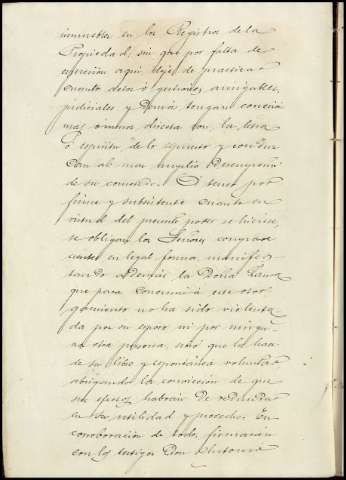 inmuebles en los Registros de la
Propiedad, sin que por falta de
expresión aquí, deje de practicar
cuanto deseo ó gestiones, amigables,
judiciales y demás tengan conexión
mas ó menos directa con la letra
ó espíritu de lo expuesto y conduz-
can al mas amplio desempeño
de su cometido. Y tener por
firme y subsistente cuanto en
virtud del presente poder se hiciere,
se obligan los Señores compare-
cientes en legal forma, manifes-
tando además la Doña
que para concurrir á este otor-
gamiento no ha sido violenta-
da por su esposo ni por ningu-
na otra persona, sinó que lo hace
de su libre y espontánea voluntad
abrigando la convicción de que
sus efectos habrán de redundar
en su utilidad y provecho. En
corroboración de todo, firmarán
con los testigos Don Antonio